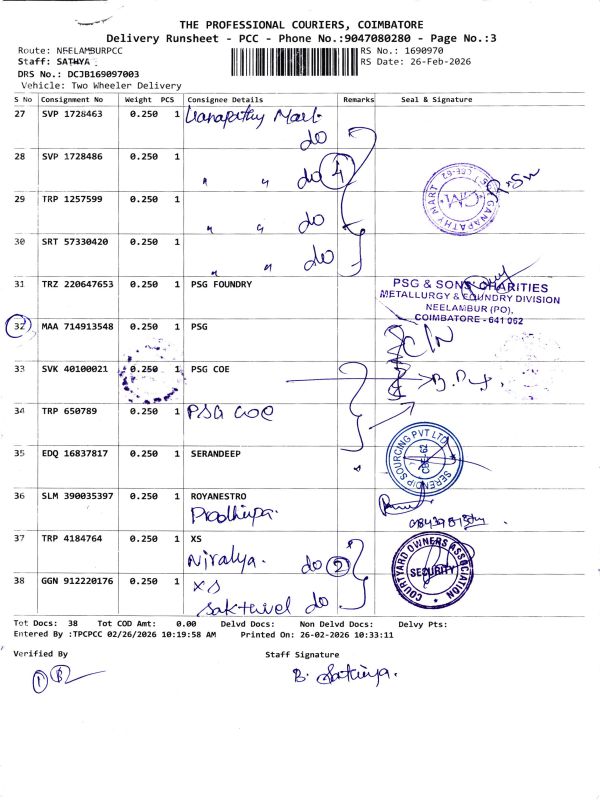 THE PROFESSIONAL COURIERS, COIMBATORE
Delivery Runsheet - PCC - Phone No.:9047080280 - Page No.:3
Route: NEELAMBURPCC
RS No.: 1690970
Staff: SATHYA
RS Date: 26-Feb-2026
DRS No.: DCJB169097003
Vehicle: Two Wheeler Delivery
S No Consignment No Weight PCS Consignee Details Remarks Seal & Signature
27 SVP 1728463 0.250 1 Ganapathy Mart
do
28 SVP 1728486 0.250 1
" " do 4
29 TRP 1257599 0.250 1
" " do
30 SRT 57330420 0.250 1
" " do
GANAPATHY MART
31 TRZ 220647653 0.250 1 PSG FOUNDRY
PSG & SONS CHARITIES
METALLURGY & FOUNDRY DIVISION
NEELAMBUR (PO),
COIMBATORE - 641 062
32 MAA 714913548 0.250 1 PSG
33 SVK 40100021 0.250 1 PSG COE
34 TRP 650789 0.250 1 PSG COE
35 EDQ 16837817 0.250 1 SERANDEEP
SERENDIP SOURCING PVT LTD
CBE-62
36 SLM 390035397 0.250 1 ROYANESTRO
Pradhiepa.
37 TRP 4184764 0.250 1 XS
Niralya. do 2
COURTYARD OWNERS ASSOCIATION
SECURITY
38 GGN 912220176 0.250 1 XS
Sakthivel do
Tot Docs: 38 Tot COD Amt: 0.00 Delvd Docs: Non Delvd Docs: Delvy Pts:
Entered By :TPCPCC 02/26/2026 10:19:58 AM Printed On: 26-02-2026 10:33:11
Verified By
Staff Signature
B. Sathiya.